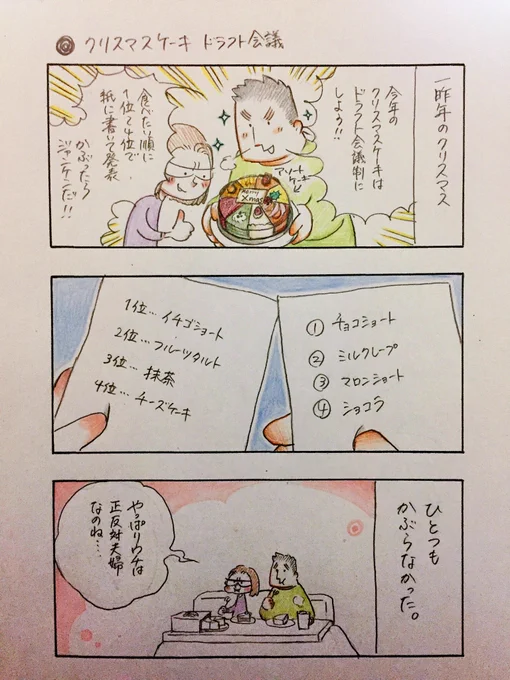 クリスマスケーキ ドラフト会議
一昨年のクリスマス
今年の
クリスマスケーキは
ドラフト会議制に
しよう!!
アソート
ケーキ
Merry
Xmas
食べたい順に
1位〜4位まで
紙に書いて発表
かぶったら
ジャンケンだ!!
1位…イチゴショート
2位…フルーツタルト
3位…抹茶
4位…チーズケーキ
① チョコショート
② ミルクレープ
③ マロンショート
④ ショコラ
ひとつも
かぶらなかった。
やっぱりウチは
正反対夫婦
なのね…